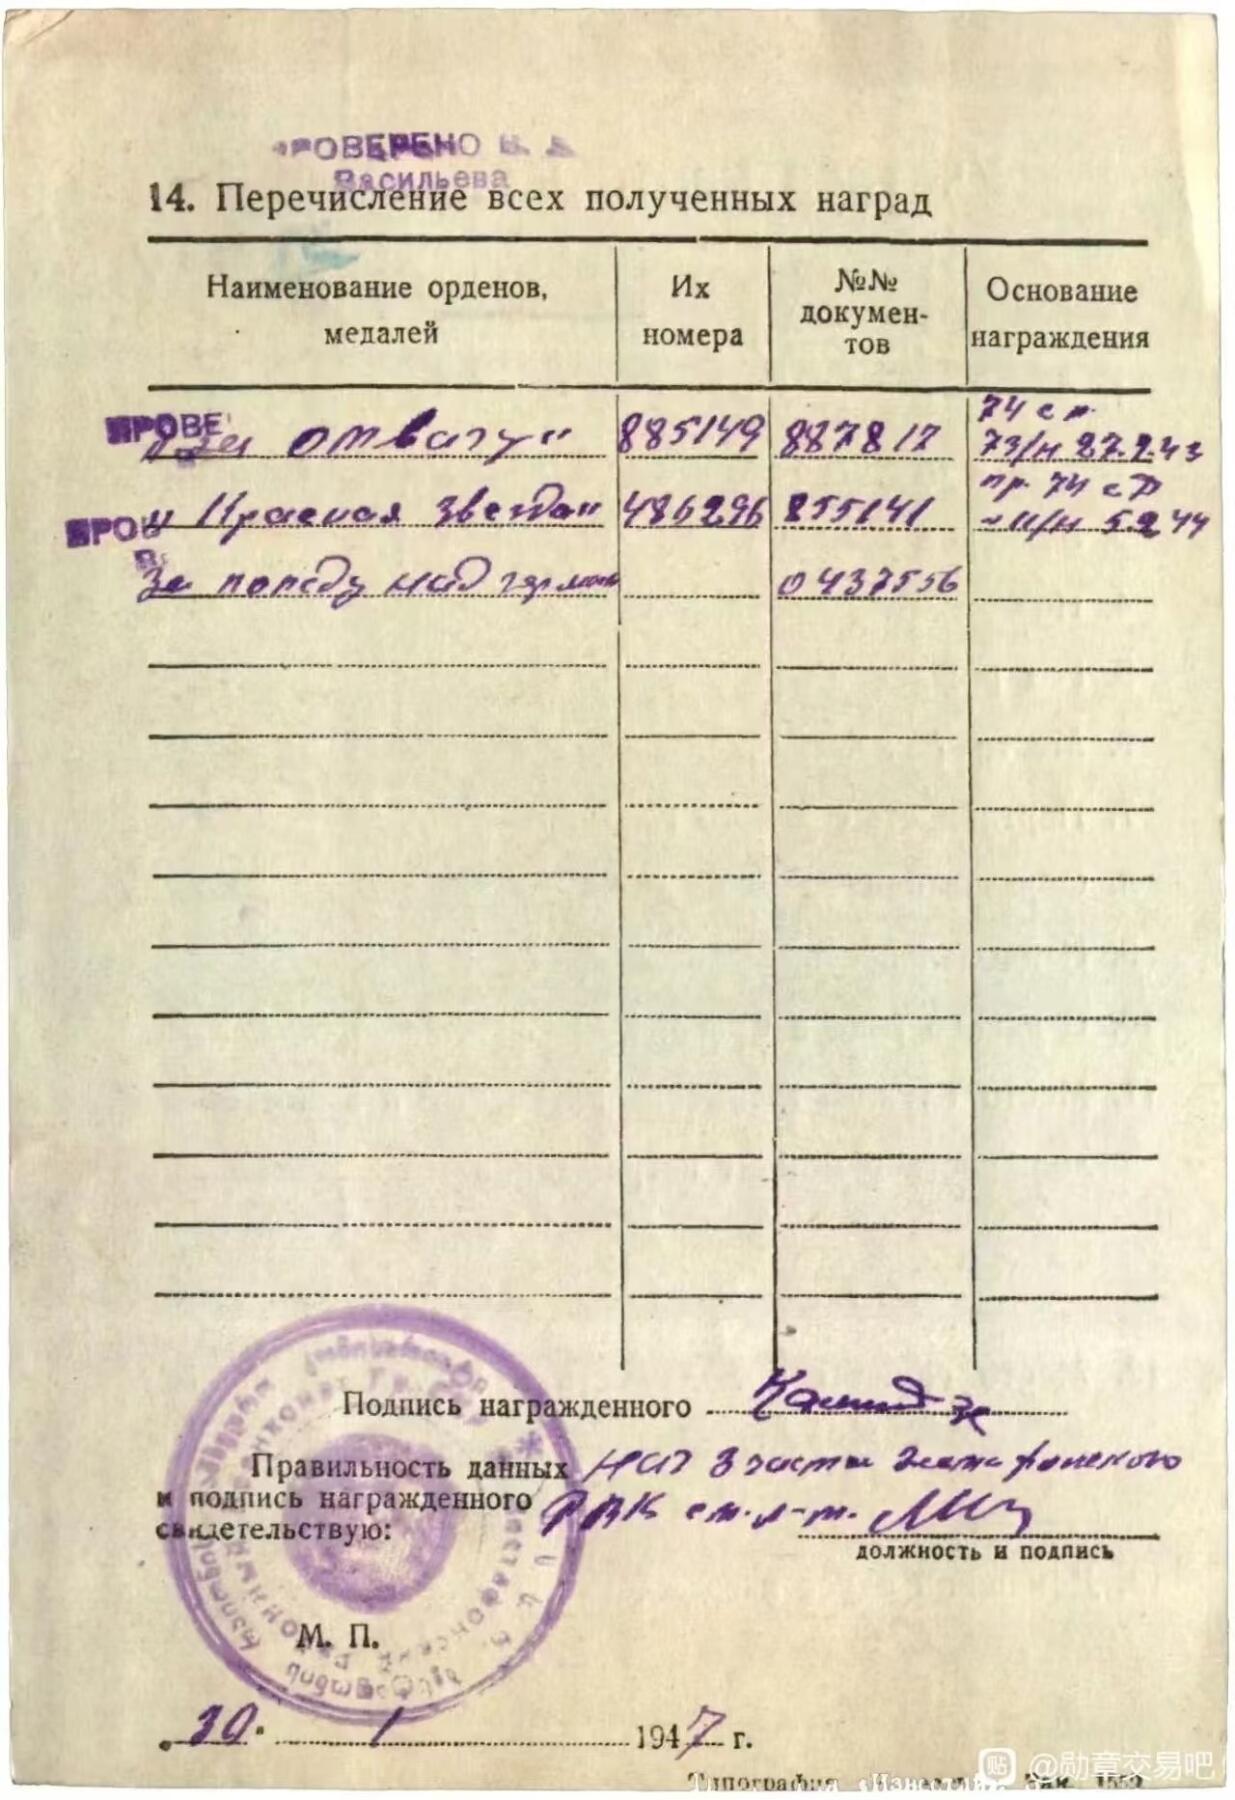 ПРОВЕРЕНО
Васильева
14. Перечисление всех полученных наград
Наименование орденов,
медалей
Их
номера
№№
докумен-
тов
Основание
награждения
ПРОВЕ
„За отвагу“ 885149 887817 74 с п
73/н 27.9.43
ПРОВ
„Красная звезда“ 486296 855141 пр. 74 сд
5.2 44
За победу над герман 0437556
Подпись награжденного
Правильность данных нач 3 части
и подпись награжденного РВК ст. л-т.
свидетельствую:
должность и подпись
М. П.
„30“ 1 1947 г.
Типография «Известия» Зак. 1552
贴 @勋章交易吧